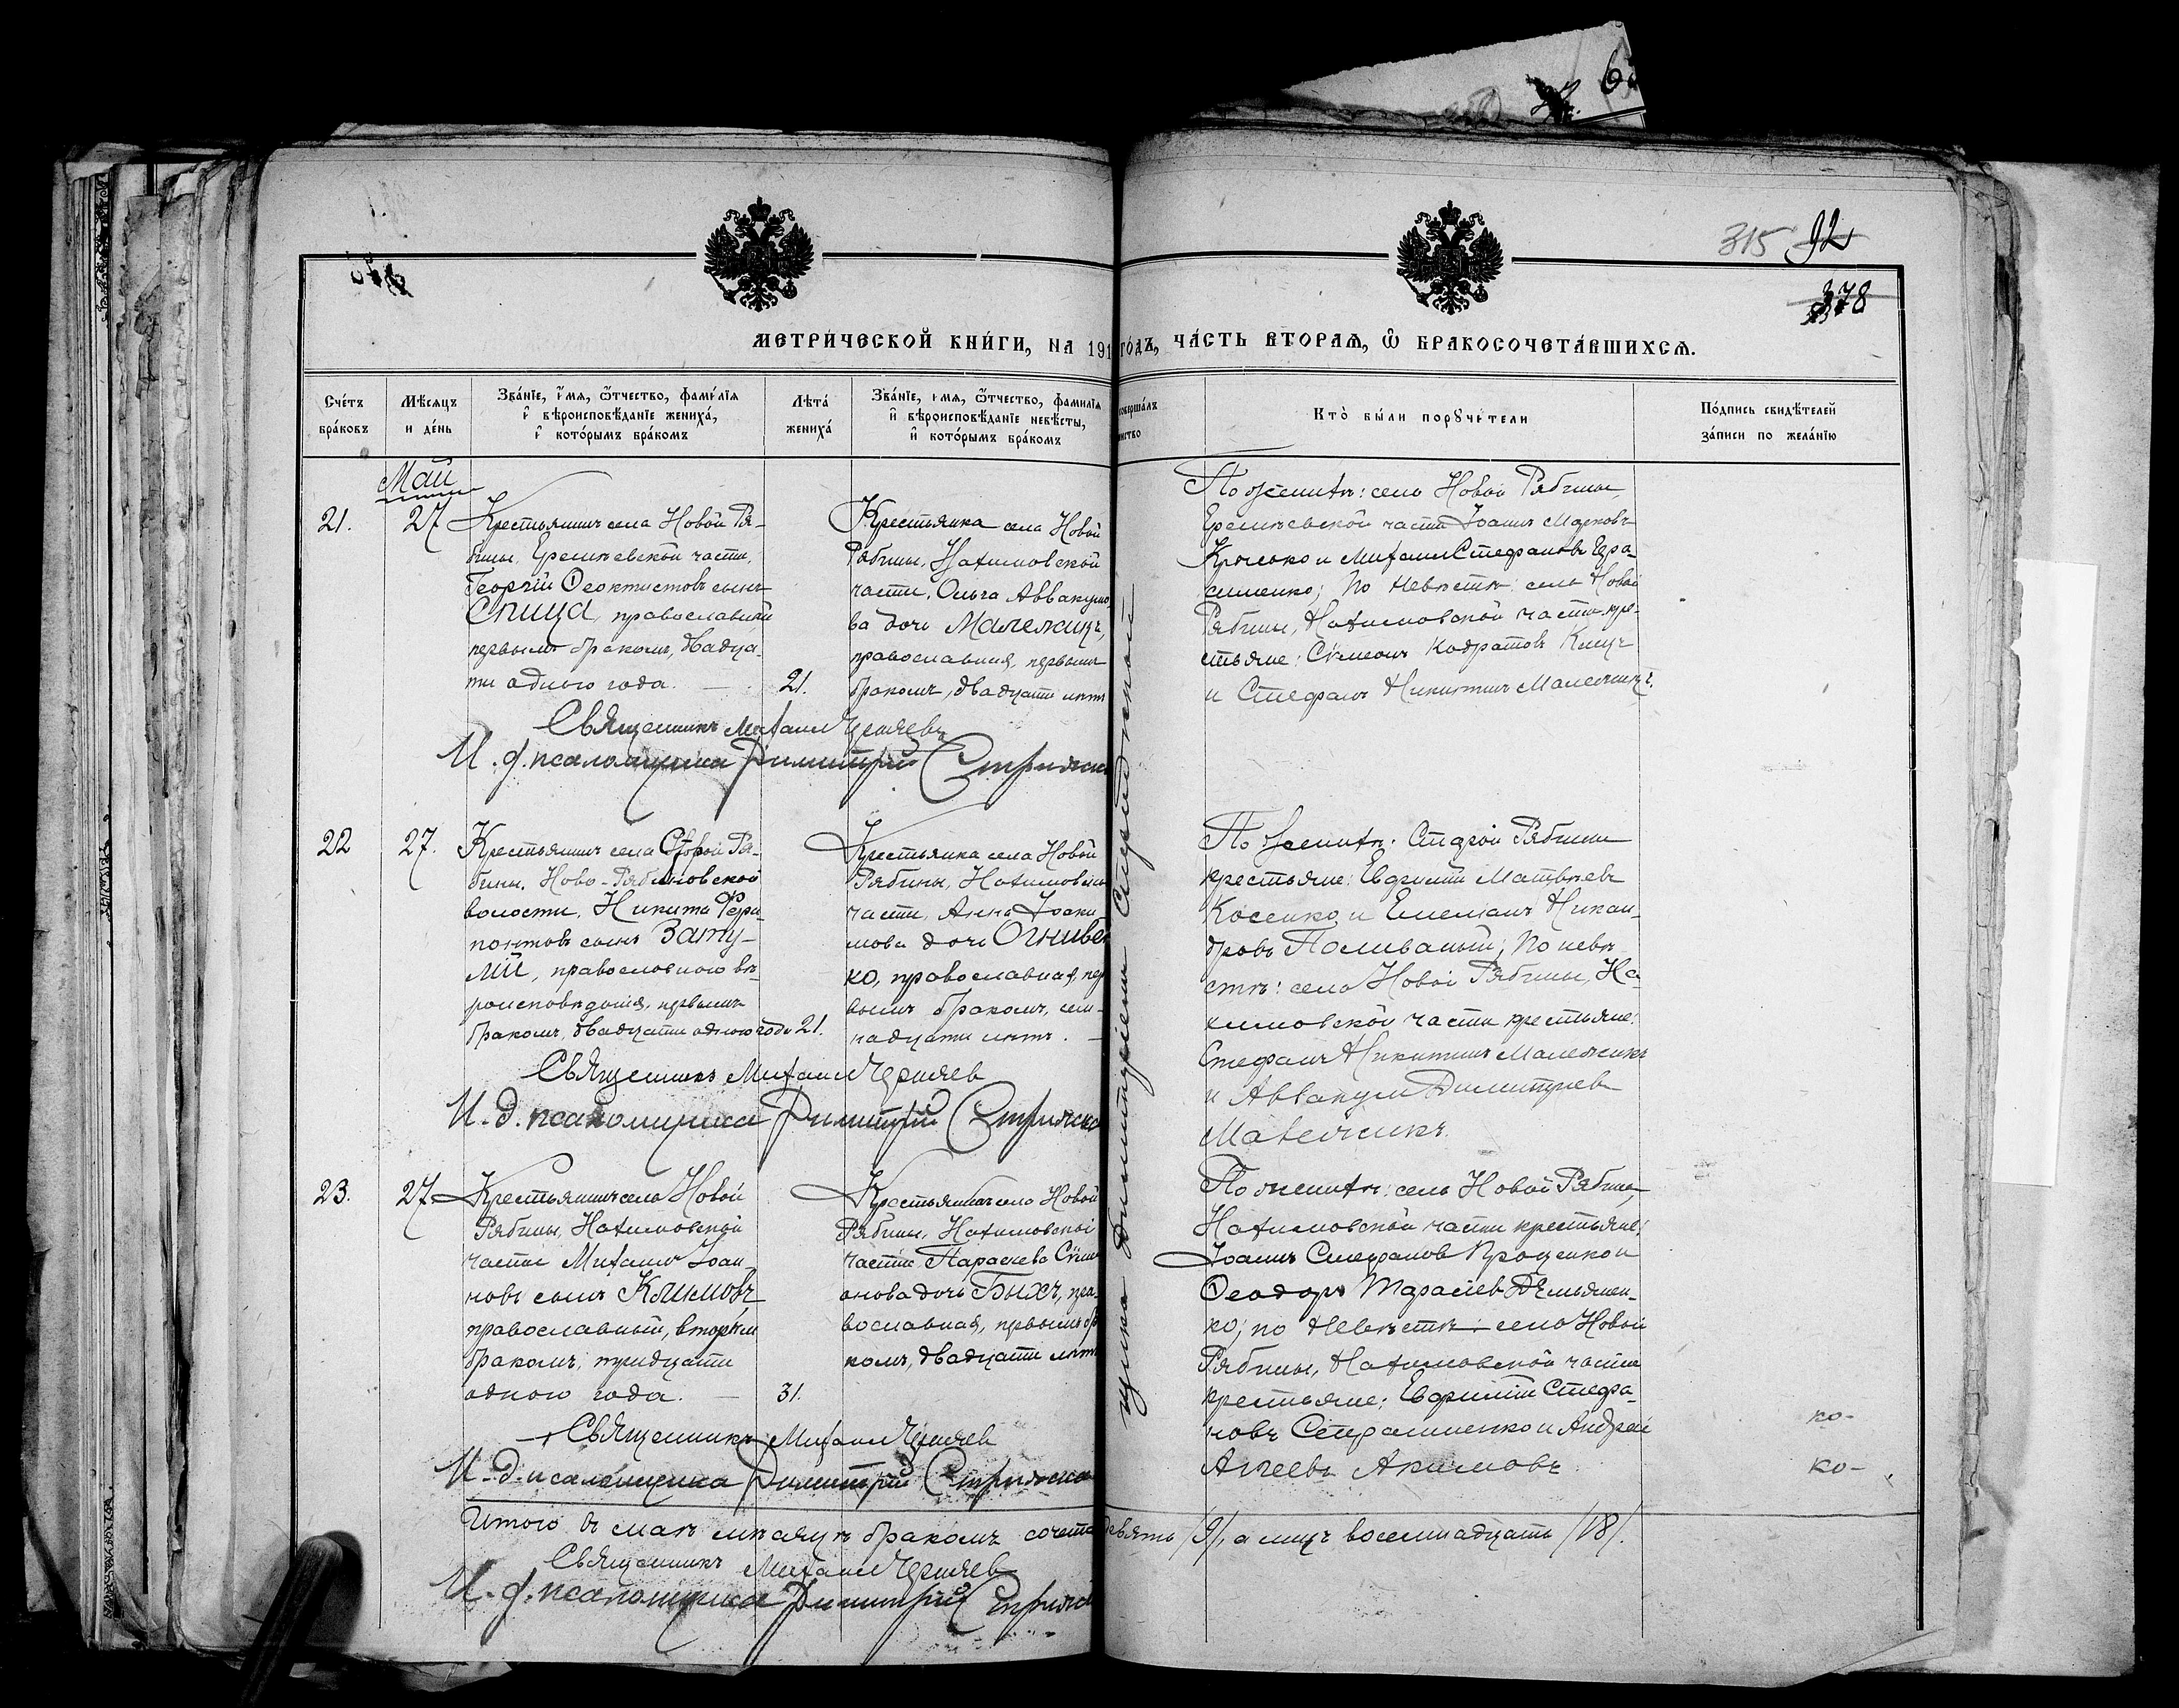 315 92
378
МЕТРИ́ЧЕСКОЙ КНИ́ГИ, НА 191 ГО́ДЪ, ЧА́СТЬ ВТОРАѦ, Ѿ БРАКОСОЧЕТА́ВШИХСѦ.
Сче́тъ бра́ковъ
Мѣ́сяцъ и де́нь
Зва́нїе, и́мя, о́тчество, фами́лїя
и вѣроисповѣ́данїе жениха́,
и кото́рымъ бра́комъ
Лѣта́ жениха́
Зва́нїе, имя, о́тчество, фами́лїя
и вѣроисповѣ́данїе невѣ́сты,
и кото́рымъ бра́комъ
Кто̀ бы́ли порꙋчи́тели
По́дпись свидѣ́телей
за́писи по жела́нїю
Май
21.
27
Крестьянинъ села Новой Ря-
бины, Еремѣевской части,
Георгій Ѳеоктистовъ сынъ
Спица, православный
первымъ бракомъ, двадца-
ти одного года.
21.
Крестьянка села Новой
Рябины, Нахимовской
части, Ольга Аввакумо
ва дочь Малежикъ,
православная, первымъ
бракомъ, двадцати лѣтъ
По женихѣ: села Новой Рябины,
Еремѣевской части Іоаннъ Марковъ
и Михаилъ Стефановъ Гера-
сименко; По невѣстѣ: села Новой
Рябины, Нахимовской части кре-
стьяне: Сѵмеонъ Кодратовъ
и Стефанъ Никитинъ Малежикъ.
Священникъ Михаилъ Черняевъ
И. д. псаломщика Димитрій
22
27.
Крестьянинъ села Старой Ря-
бины, Ново-Рябиновской
волости, Никита Фера-
понтовъ сынъ Зату-
лій, православного вѣ-
роисповѣданія, первымъ
бракомъ, двадцати одного года 21.
Крестьянка села Новой
Рябины, Нахимовской
части, Анна Іоаки-
мова дочь Огнивен
ко, православная, пер
вымъ бракомъ, сем-
надцати лѣтъ.
По женихѣ: Старой Рябины
крестьяне: Евфимій Матвѣевъ
Косенко и Емеліанъ Никан-
дровъ Поливаный; По невѣ-
стѣ: села Новой Рябины, На-
химовской части крестьяне:
Стефанъ Никитинъ Малежикъ
и Аввакумъ Димитріев
Малежикъ.
Священникъ Михаилъ Черняев
И. д. псаломщика Димитрій
23.
27
Крестьянинъ села Новой
Рябины, Нахимовской
части Михаилъ Іоан-
новъ сынъ Климовъ
православный, вторымъ
бракомъ, тридцати
одного года.
31.
села Новой
Рябины, Нахимовской
части Параскева Сѵме
онова дочь Быхъ, пра-
вославная, первымъ бра
комъ, двадцати лѣтъ
По женихѣ: села Новой Рябины,
Нахимовской части крестьяне:
Іоаннъ Стефановъ Проценко и
Ѳеодоръ Тарасіевъ Демьянен-
ко; по невѣстѣ: села Новой
Рябины, Нахимовской части
крестьяне: Евфимій Стефа-
новъ и Андрей
Аггеевъ Акимовъ.
ко-
ко-
Священникъ Михаилъ Черняев
И. д. псаломщика Димитрій
Итого въ маѣ мѣсяцѣ бракомъ сочета девять /9/, а лицъ восемнадцать /18/.
Священникъ Михаилъ Черняев
И. д. псаломщика Димитрій